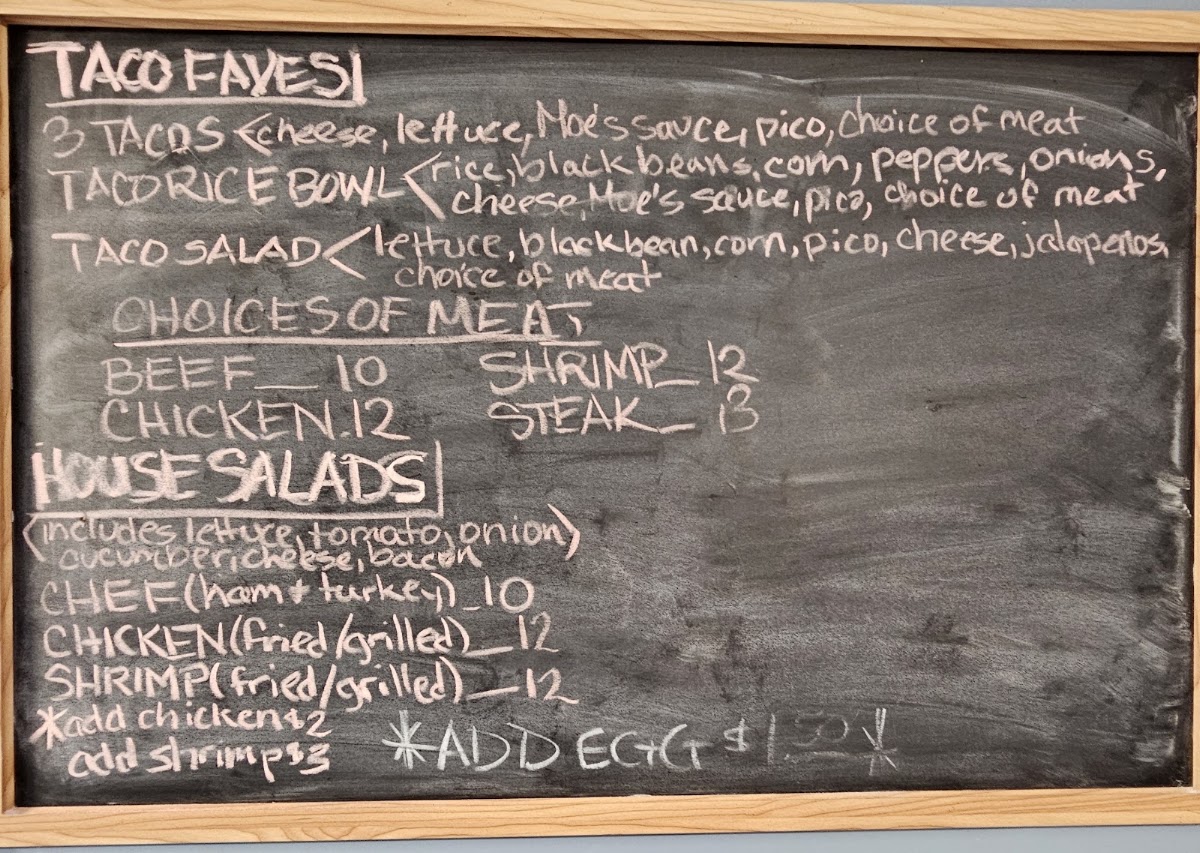 TACO FAVES
3 TACOS < cheese, lettuce, Moe's sauce, pico, choice of meat
TACO RICE BOWL < rice, black beans, corn, peppers, onions,
cheese, Moe's sauce, pico, choice of meat
TACO SALAD < lettuce, blackbean, corn, pico, cheese, jalapenos,
choice of meat
CHOICES OF MEAT
BEEF__10 SHRIMP_12
CHICKEN.12 STEAK_13
HOUSE SALADS
(includes lettuce, tomato, onion)
cucumber, cheese, bacon
CHEF (ham + turkey)_10
CHICKEN (fried/grilled)_12
SHRIMP (fried/grilled)_12
*add chicken $2
add shrimp $3
*ADD EGG $1.50*